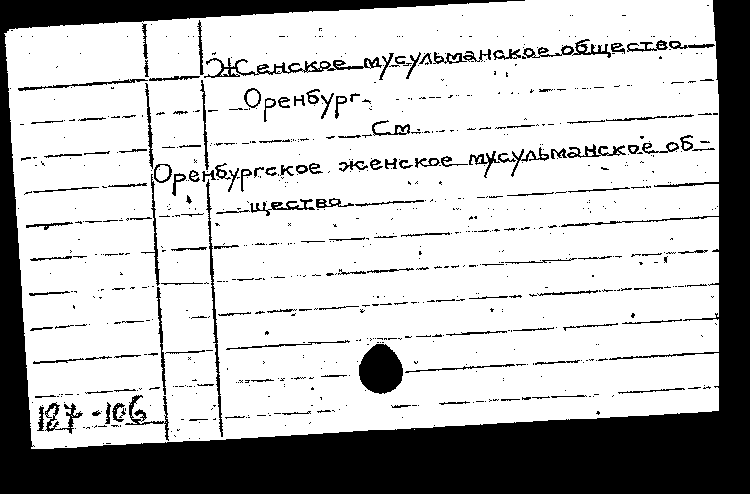 Женское мусульманское общество
Оренбург.
См.
Оренбургское женское мусульманское об-
щество.
187-106